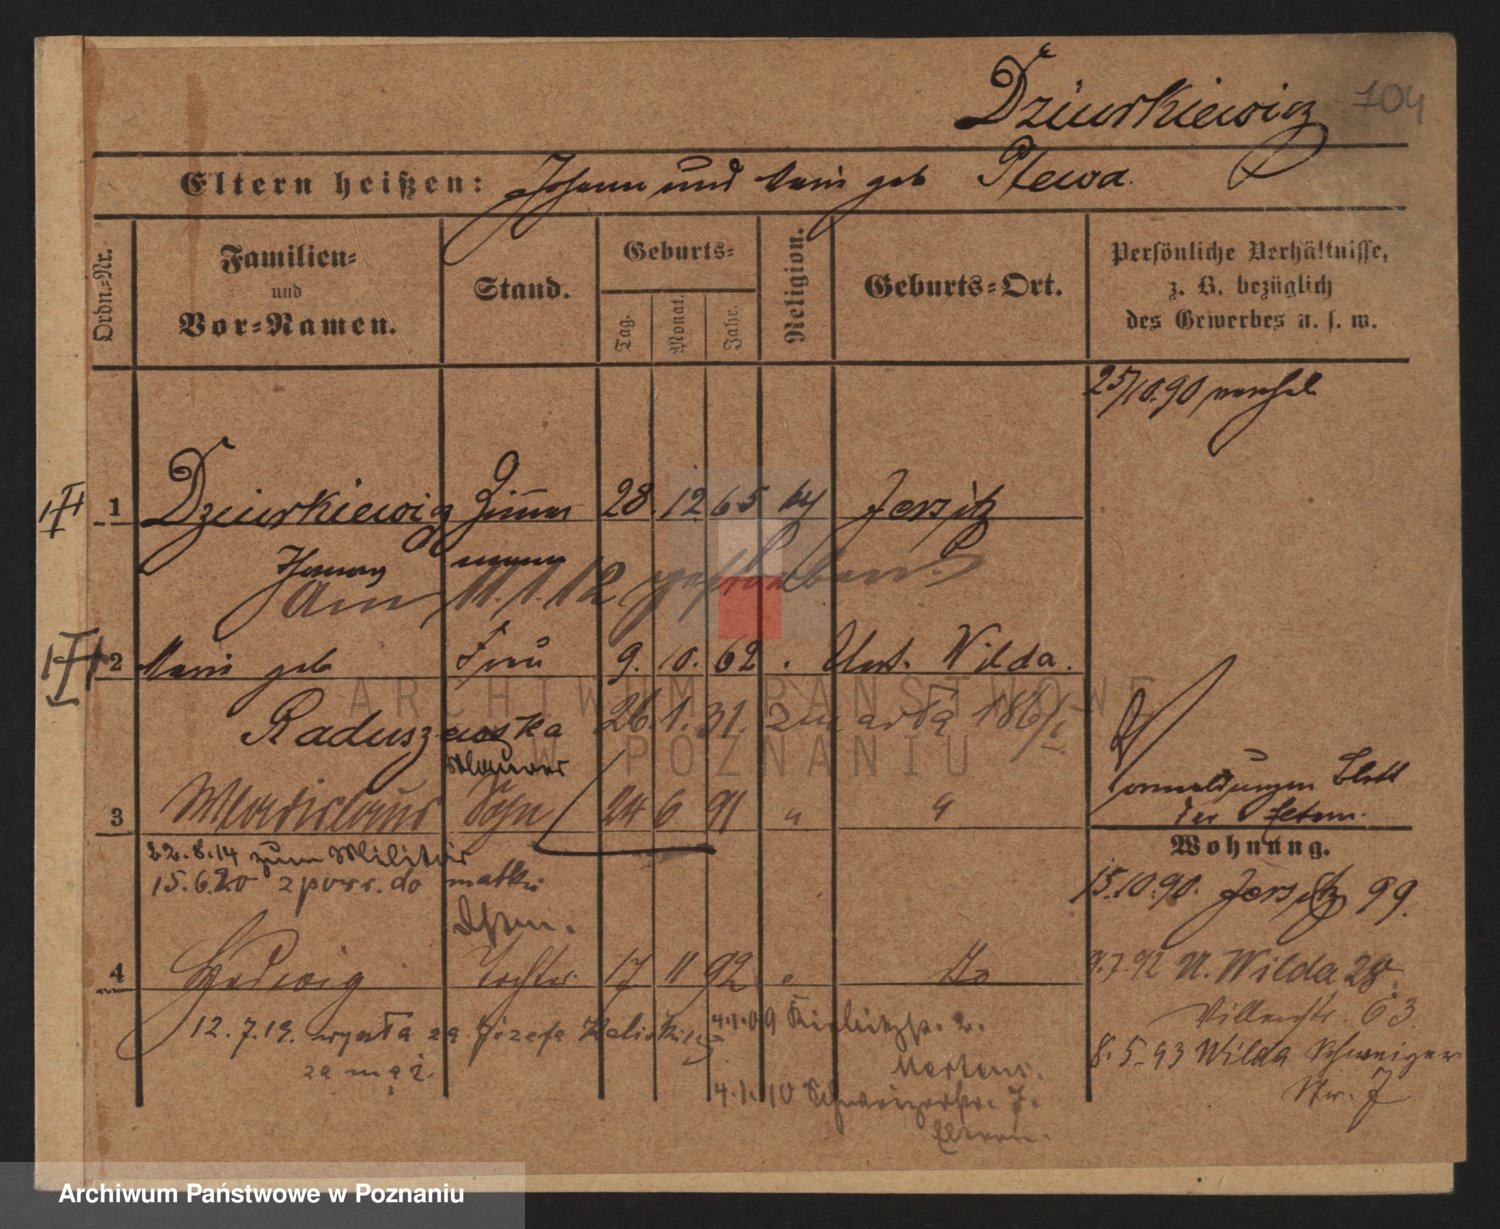 Dziurkiewicz 704
Eltern heißen: Johann und Marie geb Plewa.
Ordn.-Nr.
Familien-
und
Vor-Namen.
Stand.
Geburts-
Tag.
Monat.
Jahr.
Religion.
Geburts-Ort.
Persönliche Verhältnisse,
z. B. bezüglich
des Gewerbes u. s. w.
25/10.90
1 Dziurkiewicz Zimmer 28. 12 65 kt Jersitz
mann
am 11.1.12 gestorben.
2 Marie geb Frau 9. 10. 62 . Unt. Wilda.
Raduszewska 26.1.31. zmarła
Maurer
3 Wladislaus Sohn 24 6 91 " "
22.8.14 zum Militär
15.6.20 z pow. do matki
Eltern.
4 Hedwig Tochter 17 11 92 " do
12.7.19. wyszła za Józefa
za mąż.
4.1.09
Mertens.
4.1.10 Schweizerstr. 7.
Eltern.
Vormeldungen Blatt
der Eltern.
Wohnung.
15.10.90. Jersitz 99.
9.7.92 U. Wilda 28.
Villenstr. 63
8.5.93 Wilda Schweizer
Str. 7
ARCHIWUM PAŃSTWOWE
W POZNANIU
Archiwum Państwowe w Poznaniu